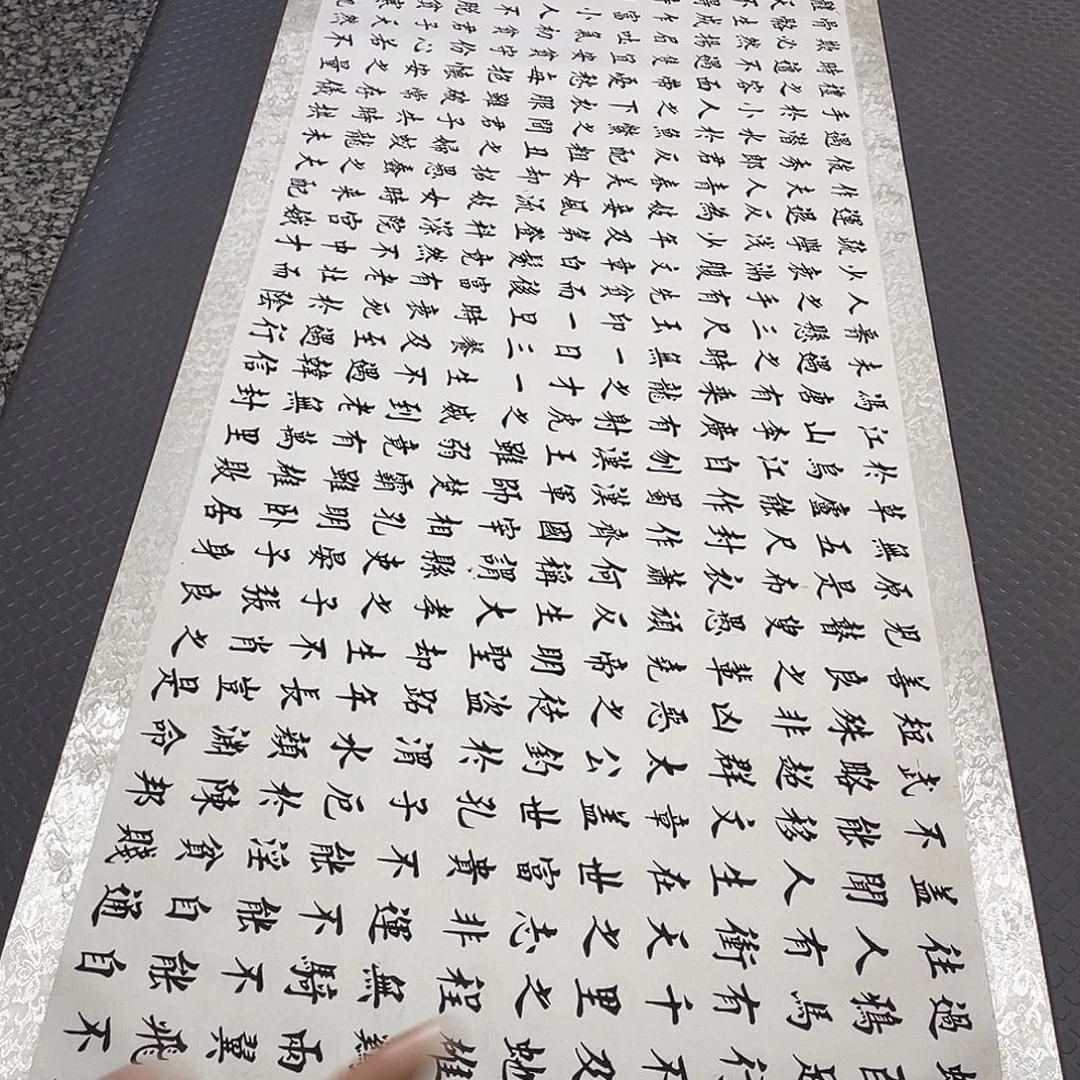 蜈百足行不及蛇雄雞兩翼飛不
過鴉馬有千里之程無騎不能自
往人有衝天之志非運不能自通
盖聞人生在世富貴不能淫貧賤
不能移文章盖世孔子厄於陳邦
武略超群太公釣於渭水顏淵命
短殊非凶惡之徒盜跖年長豈是
善良之輩堯帝明聖却生不肖之
兒瞽叟愚頑反生大孝之子張良
原是布衣蕭何稱謂縣吏晏子身
無五尺封作齊國宰相孔明卧居
草廬能作蜀漢軍師楚霸雖雄敗
於烏江自刎漢王雖弱竟有萬里
江山李廣有射虎之威到老無封
馮唐有乘龍之才一生不遇韓信
未遇之時無一日三餐及至遇行
齊懸三尺玉印一旦時衰死於陰
人之手有先貧而後富有老壯而
少衰滿腹文章白髮竟然不中才
疏學淺少年及第登科深院宮娥
運退反為妓妾風流妓女時來配
作夫人青春美女却招愚蠢之夫
俊秀郎君反配粗丑之婦蛟龍未
遇潛水於魚鱉之間君子失時拱
手於小人之下衣服雖破常存儀
禮之容面帶憂愁毋抱懷安之量
時道不遇只宜安貧守份心若不